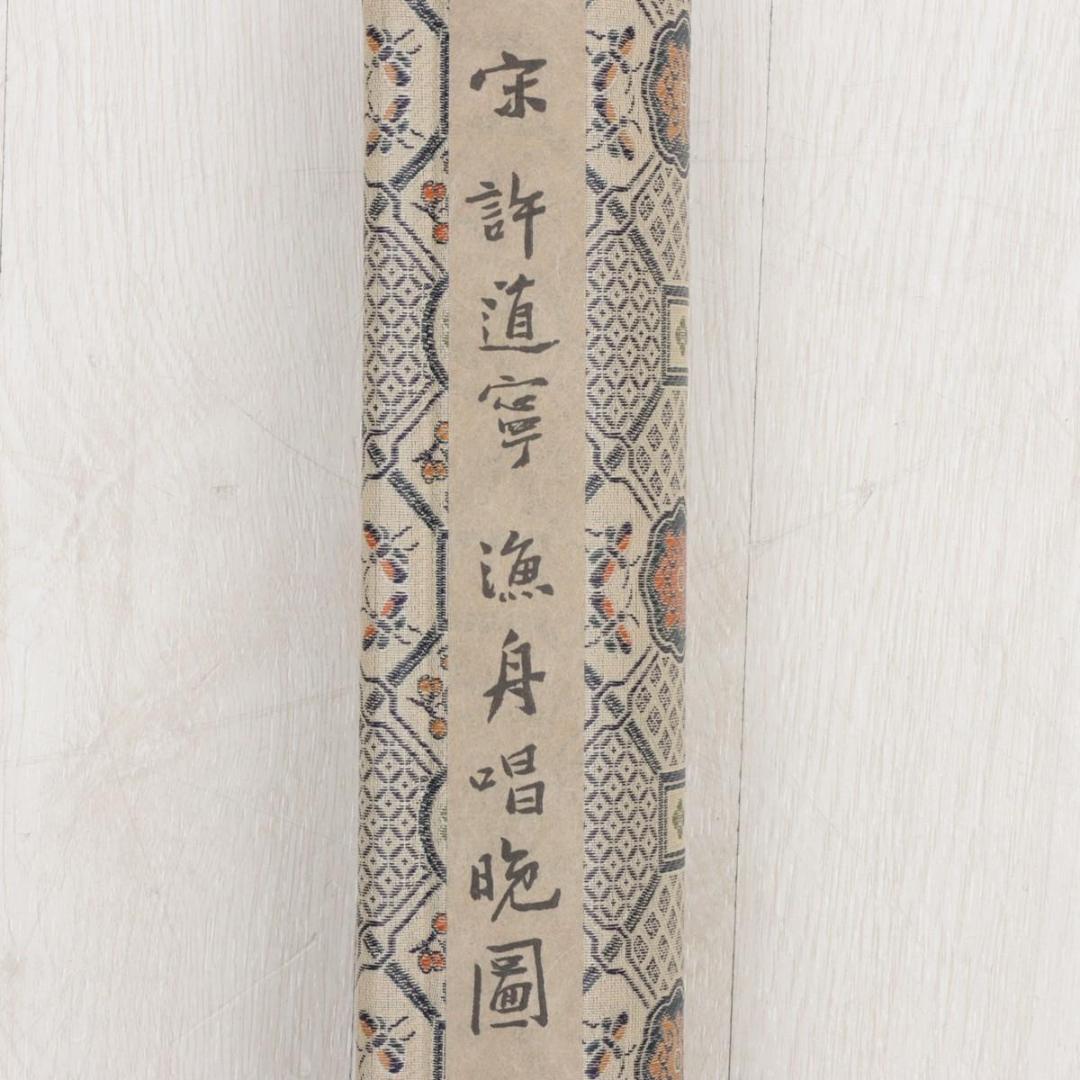 宋 許道寧 漁舟唱晚圖